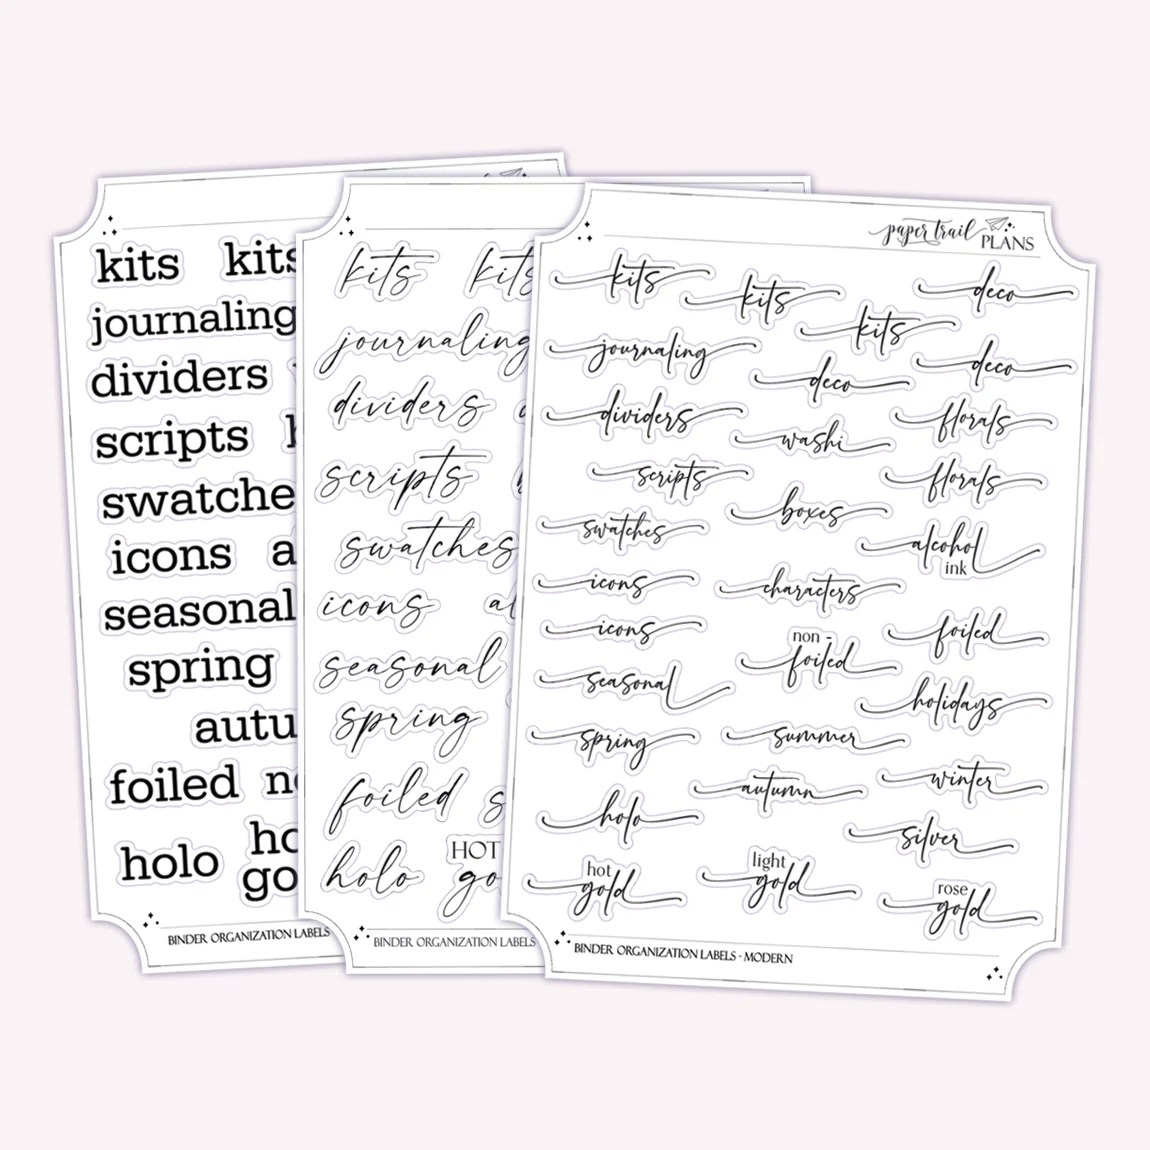 kits kits
journaling
dividers
scripts
swatche
icons a
seasonal
spring
autu
foiled
holo ho
go
BINDER ORGANIZATION LABELS
kits kits
journaling
dividers
scripts
swatches
icons al
seasonal
spring
foiled s
holo HOT
go
BINDER ORGANIZATION LABELS
paper trail PLANS
kits kits kits deco
journaling deco deco
dividers washi florals
scripts boxes florals
swatches alcohol ink
icons characters
icons non - foiled foiled
seasonal holidays
spring summer
autumn winter
holo silver
hot gold light gold rose gold
BINDER ORGANIZATION LABELS - MODERN